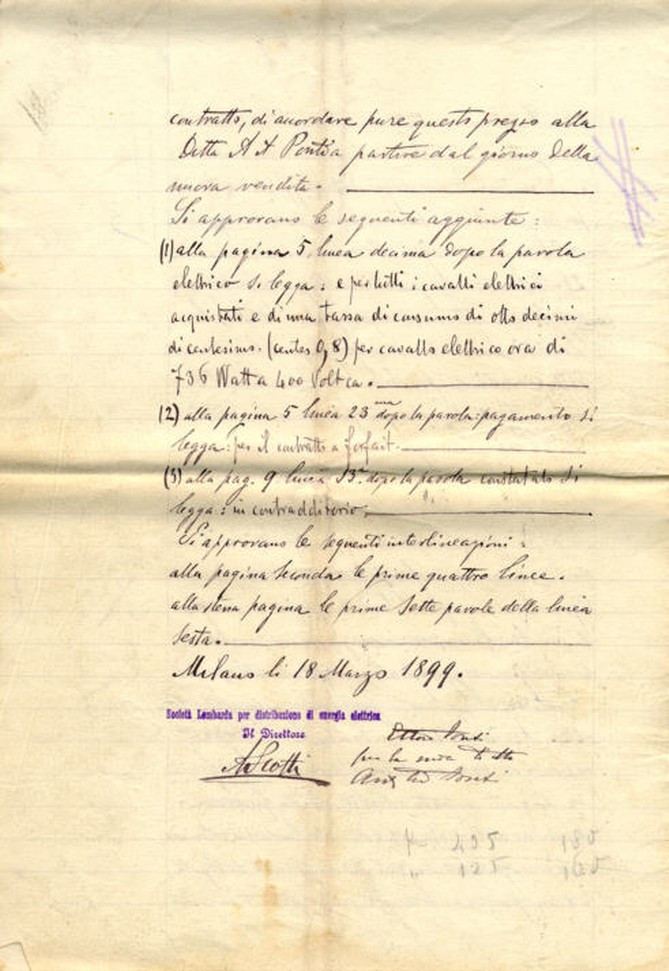 contratto, di accordare pure questo prezzo alla
Ditta A & A Ponti a partire dal giorno della
nuova vendita.
Si approvano le seguenti aggiunte:
(1) alla pagina 5, linea decima dopo la parola
elettrico si legga: e per tutti i cavalli elettrici
acquistati e di una tassa di consumo di otto decimi
di centesimo. (centes 0,8) per cavallo elettrico ora di
736 Watt a 400 Volt ca.
(2) alla pagina 5 linea 23ma dopo la parola: pagamento si
legga: per il contratto a forfait.
(3) alla pag. 9 linea 13a. dopo la parola constatato si
legga: in contradditorio.
Si approvano le seguenti interlineazioni:
alla pagina seconda le prime quattro linee.
alla stessa pagina le prime sette parole della linea
sesta.
Milano li 18 Marzo 1899.
Società Lombarda per distribuzione di energia elettrica
Il Direttore
AScotti
Ettore Ponti
per la mia Ditta
Ponti
435 180
" 125 160